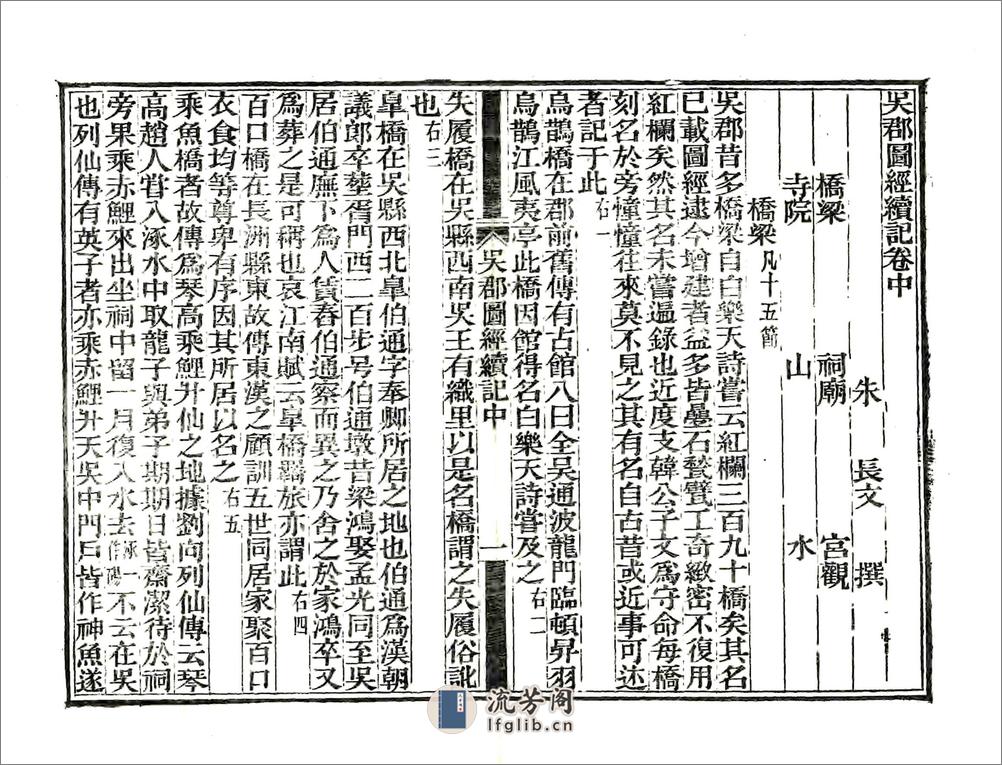 吳郡圖經續記卷中
朱 長文 撰
橋梁 祠廟 宮觀
寺院 山 水
橋梁凡十五節
吳郡昔多橋梁自白樂天詩嘗云紅欄三百九十橋矣其名
已載圖經逮今增建者益多皆疊石甃甓工奇緻密不復用
紅欄矣然其名未嘗遍錄也近度支韓公子文為守命每橋
刻名於旁憧憧往來莫不見之其有名自古昔或近事可述
者記于此右一
烏鵲橋在郡前舊傳有古館八曰全吳通波龍門臨頓昇羽
烏鵲江風夷亭此橋因館得名白樂天詩嘗及之右二
失履橋在吳縣西南吳王有織里以是名橋謂之失履俗訛
吳郡圖經續記中 一
也右三
皐橋在吳縣西北皐伯通字奉卿所居之地也伯通為漢朝
議郎卒葬胥門西二百步号伯通墩昔梁鴻娶孟光同至吳
居伯通廡下為人賃舂伯通察而異之乃舍之於家鴻卒又
為葬之是可稱也哀江南賦云皐橋羈旅亦謂此右四
百口橋在長洲縣東故傳東漢之顧訓五世同居家聚百口
衣食均等尊卑有序因其所居以名之右五
乘魚橋者故傳為琴高乘鯉升仙之地據劉向列仙傳云琴
高趙人嘗入涿水中取龍子與弟子期期日皆齋潔待於祠
旁果乘赤鯉來出坐祠中留一月復入水去涿一作碭不云在吳
也列仙傳有英子者亦乘赤鯉升天吳中門戶皆作神魚遂
流芳阁
lfglib.cn